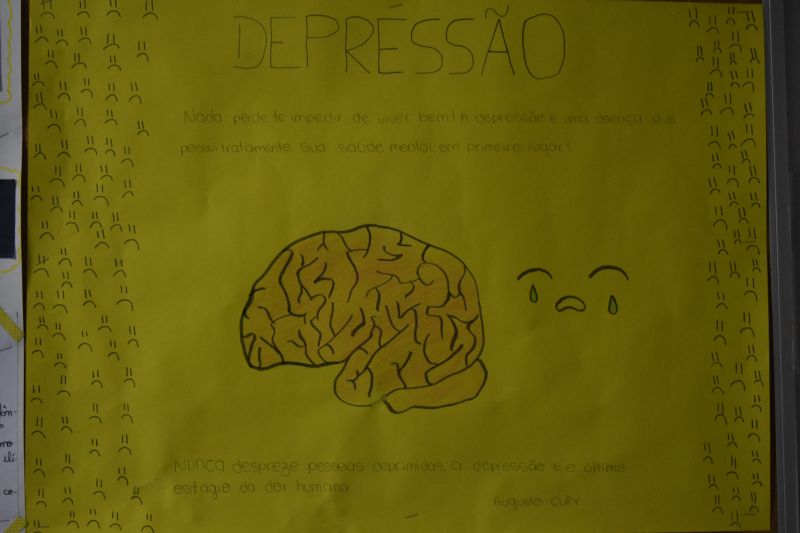 DEPRÉSSÃO
Nada pede te impedir de viver bem! A depressão é uma doença que
possui tratamento. Sua saúde mental em primeiro lugar!
NUNCA despreze pessoas deprimidas, a depressão e o último
estágio da dor humana.
Augusto Cury